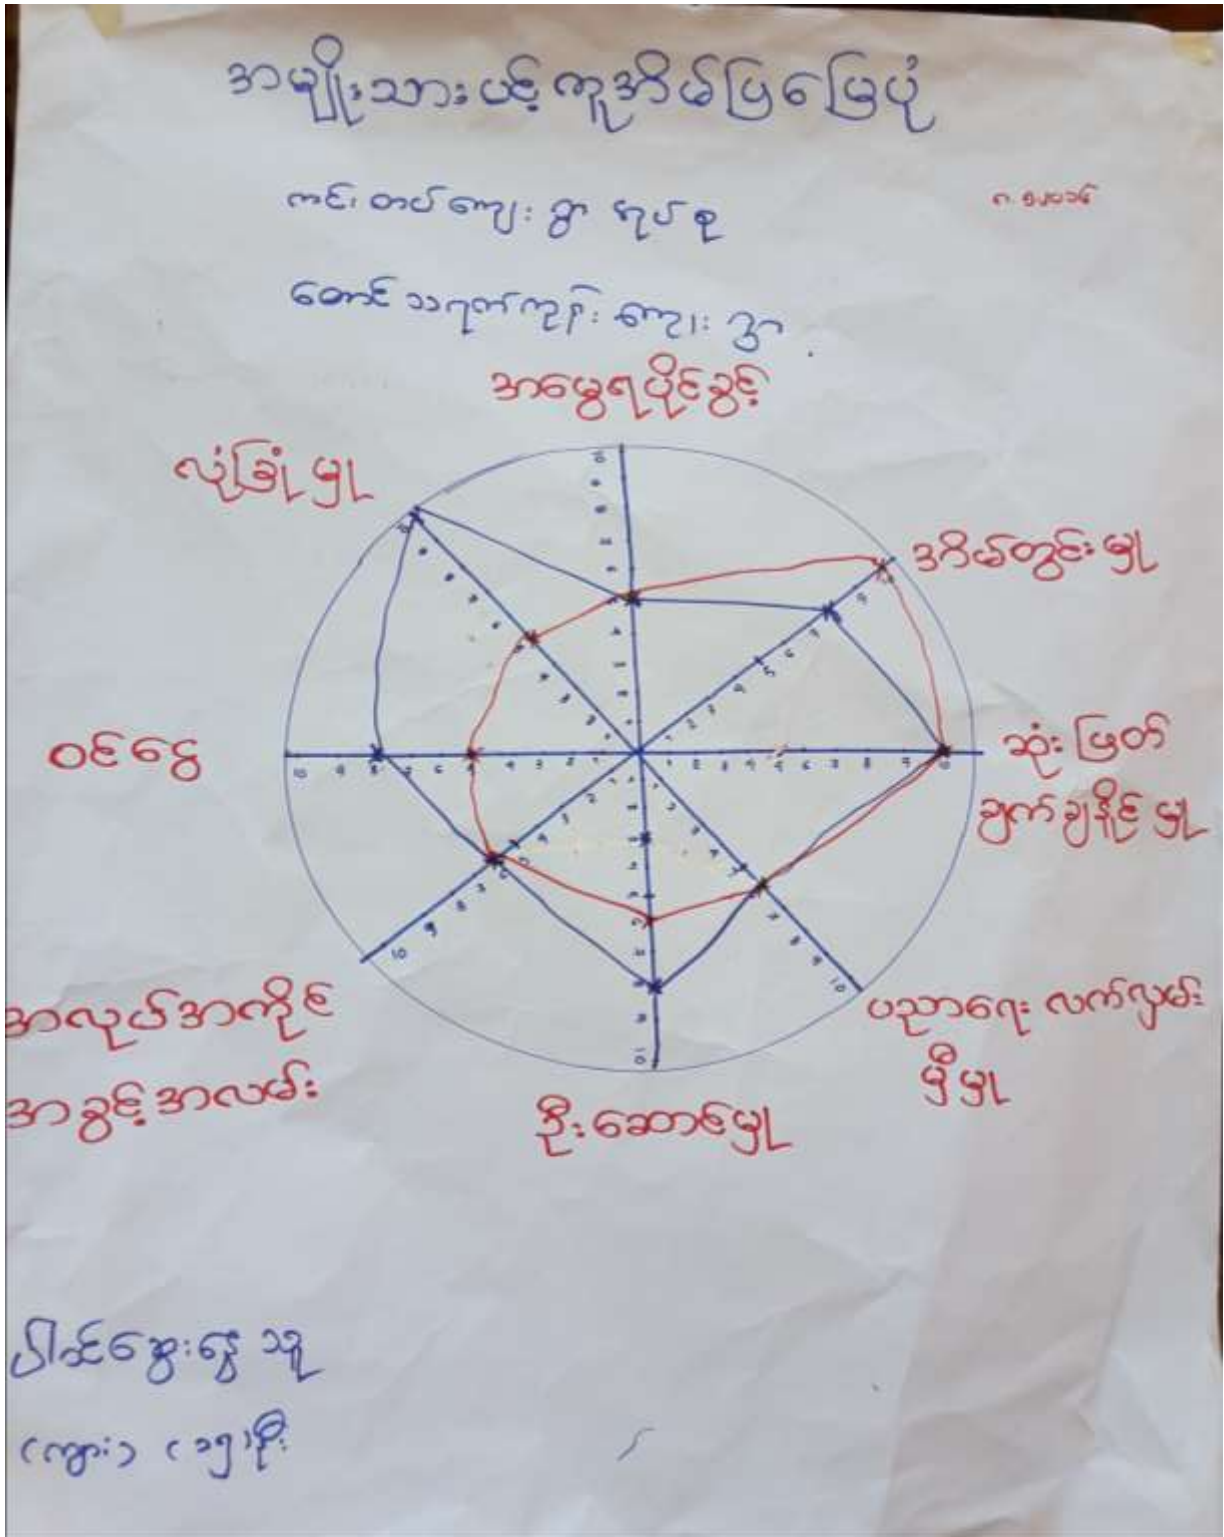 အမျိုးသားပင့်ကူအိမ်ပြမြေပုံ
ကင်းတပ်ကျေးရွာအုပ်စု
တောင်သရက်ကုန်းကျေးရွာ
အမွေရပိုင်ခွင့်
လုံခြုံမှု
အိမ်တွင်းမှု
ဝင်ငွေ
ဆုံးဖြတ်
ချက်ချနိုင်မှု
အလုပ်အကိုင်
အခွင့်အလမ်း
ပညာရေးလက်လှမ်း
မှီမှု
ဦးဆောင်မှု
ပါဝင်ဆွေးနွေးသူ
(ကျား) (၁၅)ဦး